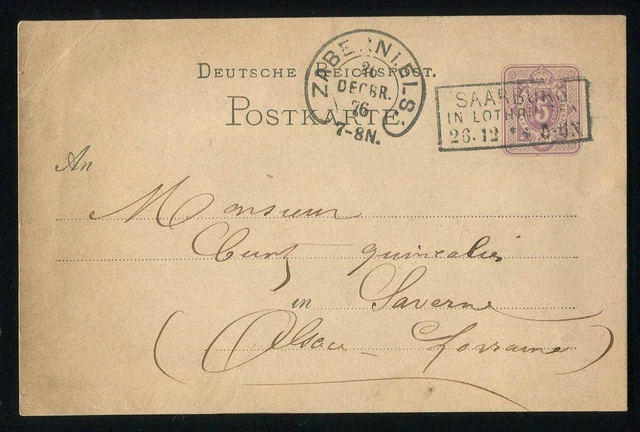 DEUTSCHE REICHSPOST.
POSTKARTE.
ZABERN I. ELS.
26
DECBR.
76
7-8N.
SAARBURG
IN LOTHRINGEN
26.12
5
An
Monsieur
Kuntz quincalier
in Saverne
(Alsace-Lorraine)